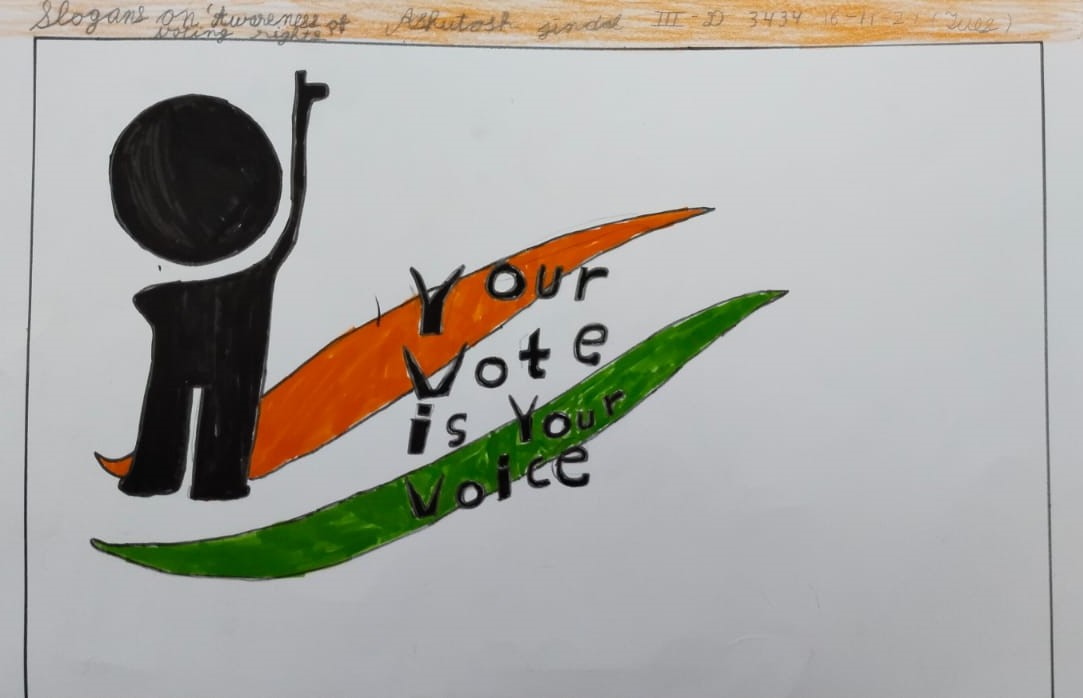 Slogans on 'Awareness of Ashutosh jindal III-D 3434 16-11-21 (Tues)
voting rights
Your
Vote
is Your
Voice